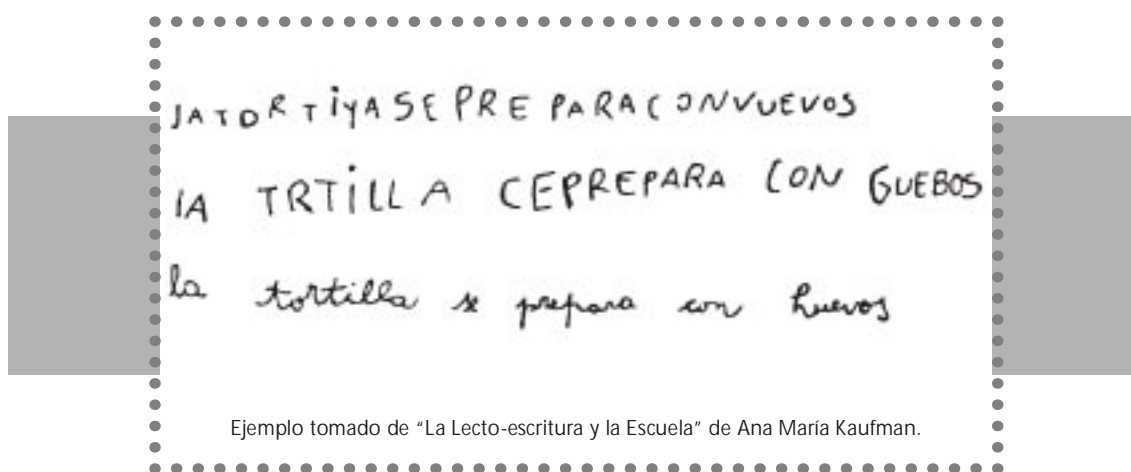 lATORTiyASEPREPARACONVUEVOS
lA TRTiLLA CEPREPARA CON GUEBOS
la tortilla se prepara con huevos
Ejemplo tomado de “La Lecto-escritura y la Escuela” de Ana María Kaufman.